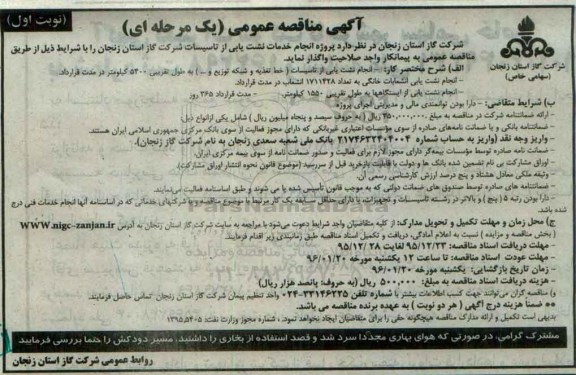 (نوبت اول)
آگهی مناقصه عمومی (یک مرحله ای)
شرکت گاز استان زنجان
(سهامی خاص)
شرکت گاز استان زنجان در نظر دارد پروژه انجام خدمات نشت یابی از تاسیسات شرکت گاز استان زنجان را با شرایط ذیل از طریق
مناقصه عمومی به پیمانکار واجد صلاحیت واگذار نماید.
الف) شرح مختصر کار: - انجام نشت یابی از تاسیسات ( خط تغذیه و شبکه توزیع و ... ) به طول تقریبی ۵۳۰۰ کیلومتر در مدت قرارداد.
- انجام نشت یابی انشعابات خانگی به تعداد ۱۷۱۱۴۲۸ انشعاب در مدت قرارداد.
- انجام نشت یابی از ایستگاهها به طول تقریبی ۱۵۵۰ کیلومتر. - مدت قرارداد ۳۶۵ روز
ب) شرایط متقاضی: - دارا بودن توانمندی مالی و مدیریتی اجرای پروژه
- ارائه ضمانتنامه شرکت در مناقصه به مبلغ ۳۵۰,۰۰۰,۰۰۰ ریال (به حروف سیصد و پنجاه میلیون ریال) شامل یکی از انواع ذیل:
- ضمانتنامه بانکی و یا ضمانت نامه‌های صادره از سوی مؤسسات اعتباری غیربانکی که دارای مجوز فعالیت از سوی بانک مرکزی جمهوری اسلامی ایران هستند.
- واریز وجه نقد (واریز به حساب شماره ۲۱۷۴۶۳۲۴۰۴۰۰۴ بانک ملی شعبه سعدی زنجان به نام شرکت گاز زنجان).
- ضمانت نامه صادره توسط مؤسسات بیمه‌گر دارای مجوز لازم برای فعالیت و صدور ضمانت نامه از سوی بیمه مرکزی ایران.
- اوراق مشارکت بی نام تضمین شده بانک ها و دولت با قابلیت بازخرید قبل از سررسید (موضوع قانون نحوه انتشار اوراق مشارکت).
- وثیقه ملکی معادل هشتاد و پنج درصد ارزش کارشناسی رسمی آن.
- ضمانتنامه های صادره توسط صندوق های ضمانت دولتی که به موجب قانون تأسیس شده یا می شوند و طبق اساسنامه فعالیت می‌نمایند.
- دارا بودن رتبه ۵ (پنج) و بالاتر در رشته تاسیسات و تجهیزات، یا دارای حداقل سابقه یک کار مرتبط با موضوع مناقصه و یا شرکتهای خدماتی که در اساسنامه آنها انجام خدمات فنی درج
شده باشد.
ج) محل زمان و مهلت تکمیل و تحویل مدارک: از کلیه متقاضیان واجد شرایط دعوت می‌شود با مراجعه به سایت شرکت گاز استان زنجان به آدرس www.nigc-zanjan.ir
( بخش مناقصه و مزایده ) نسبت به اعلام آمادگی، دریافت و تکمیل اسناد مناقصه طبق زمانبندی زیر اقدام فرمایند.
- مهلت دریافت اسناد مناقصه: ۹۵/۱۲/۲۳ لغایت ۹۵/۱۲/۲۸
- مهلت عودت اسناد مناقصه: تا ساعت ۱۲ یکشنبه مورخه ۹۶/۰۱/۲۰
- زمان تاریخ بازگشایی: یکشنبه مورخه ۹۶/۰۱/۲۰
- هزینه دریافت اسناد مناقصه به مبلغ: ۵۰۰,۰۰۰ ریال (به حروف: پانصد هزار ریال)
و مناقصه گران می توانند جهت کسب اطلاعات بیشتر با شماره تلفن ۳۳۱۴۶۲۳۵-۰۲۴ واحد تنظیم پیمان شرکت گاز استان زنجان تماس حاصل فرمایند.
** ضمناً هزینه درج آگهی ( هر دو نوبت ) به عهده برنده مناقصه می باشد.
بدیهی است تکمیل و ارائه مدارک مناقصه هیچگونه حقی را برای متقاضیان ایجاد نخواهد نمود. ، شماره مجوز وزارت نفت: ۱۳۹۵,۵۴۰۵
مشترک گرامی، در صورتی که هوای بهاری مجدداً سرد شد و قصد استفاده از بخاری را داشتید، مسیر دودکش را حتما بررسی فرمایید
روابط عمومی شرکت گاز استان زنجان